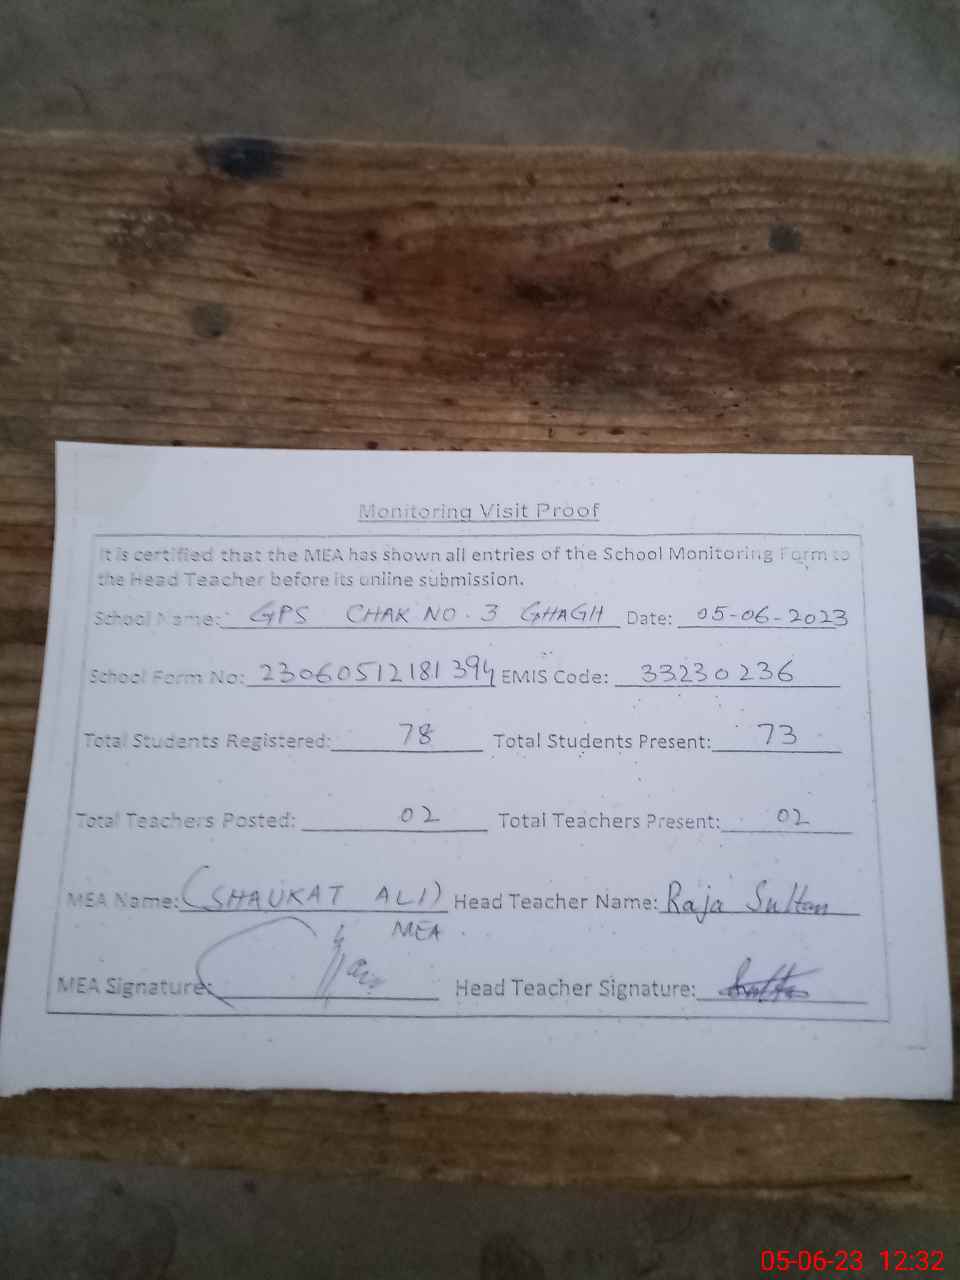 Monitoring Visit Proof
It is certified that the MEA has shown all entries of the School Monitoring Form to
the Head Teacher before its online submission.
School Name: GPS CHAK NO. 3 GHAGH Date: 05-06-2023
School Form No: 23060512181394 EMIS Code: 33230236
Total Students Registered: 78 Total Students Present: 73
Total Teachers Posted: 02 Total Teachers Present: 02
MEA Name: (SHAUKAT ALI) Head Teacher Name: Raja Sultan
MEA
MEA Signature: Head Teacher Signature:
05-06-23 12:32